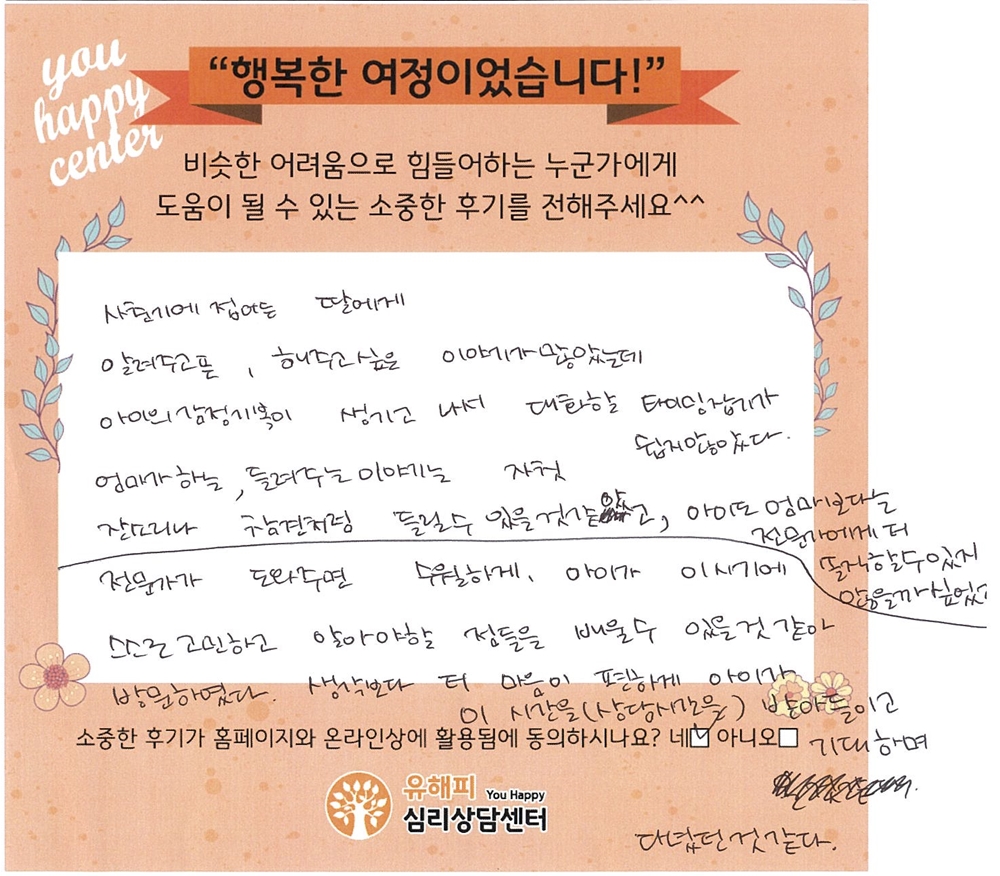 you
happy
center
“행복한 여정이었습니다!”
비슷한 어려움으로 힘들어하는 누군가에게
도움이 될 수 있는 소중한 후기를 전해주세요^^
사춘기에 접어든 딸에게
알려주고픈, 해주고싶은 이야기가 많았는데
아이의 감정기복이 생기고 나서 대화할 타이밍잡기가
쉽지않았다.
엄마가 하는, 들려주는 이야기는 자칫
잔소리나 참견처럼 들릴수 있을것같았고, 아이도 엄마보다는
전문가에게 더
솔직할수있지
않을까싶었고
전문가가 도와주면 수월하게, 아이가 이시기에
스스로 고민하고 알아야할 점들을 배울수 있을것 같아
방문하였다. 생각보다 더 마음이 편하게 아이가
이 시간을(상담시간을) 받아들이고
소중한 후기가 홈페이지와 온라인상에 활용됨에 동의하시나요? 네☑ 아니오□ 기대하며
유해피 You Happy
심리상담센터
다녔던것같다.